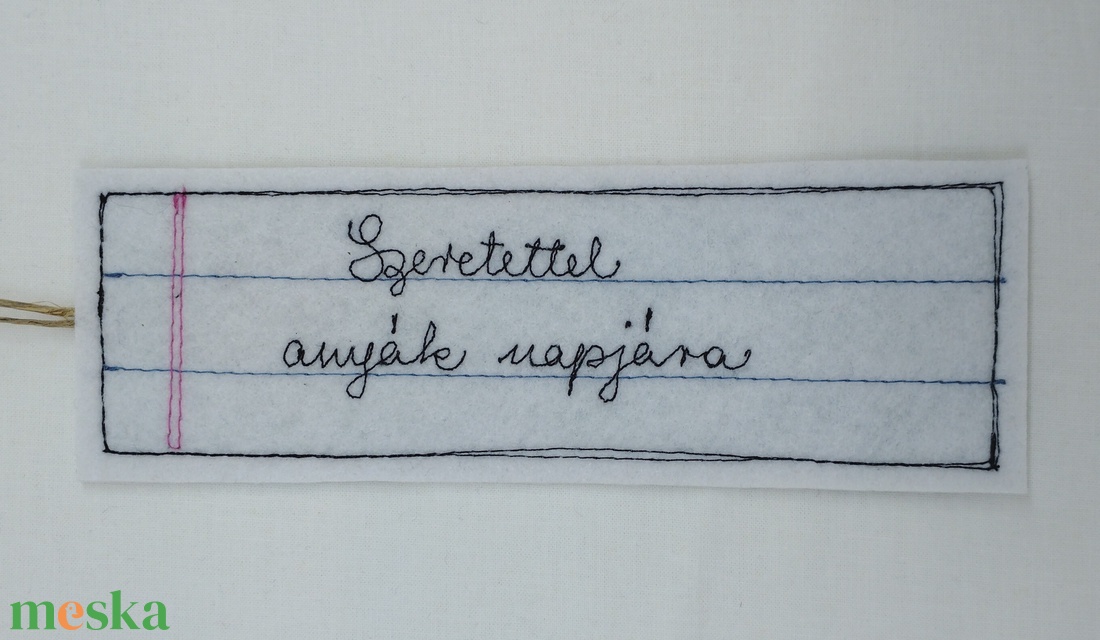 Szeretettel
anyák napjára
meska